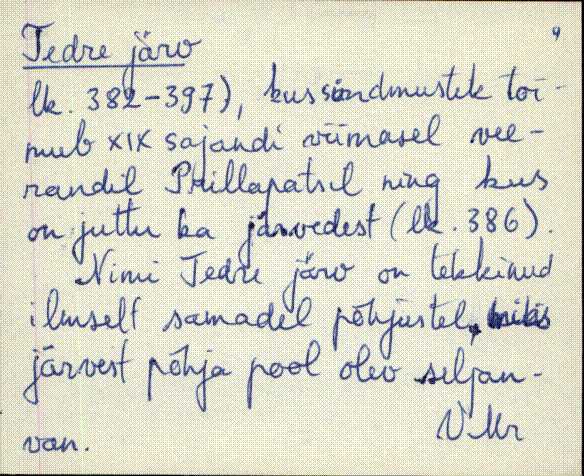 4
Tedre järv
lk. 382-397), kus sündmustik toi-
mub XIX sajandi viimasel vee-
randil Prillapatsil ning kus
on juttu ka järvedest (lk. 386).
Nimi Tedre järv on tekkinud
ilmselt samadel põhjustel,
järvest põhja pool olev seljan-
van. V.Mr